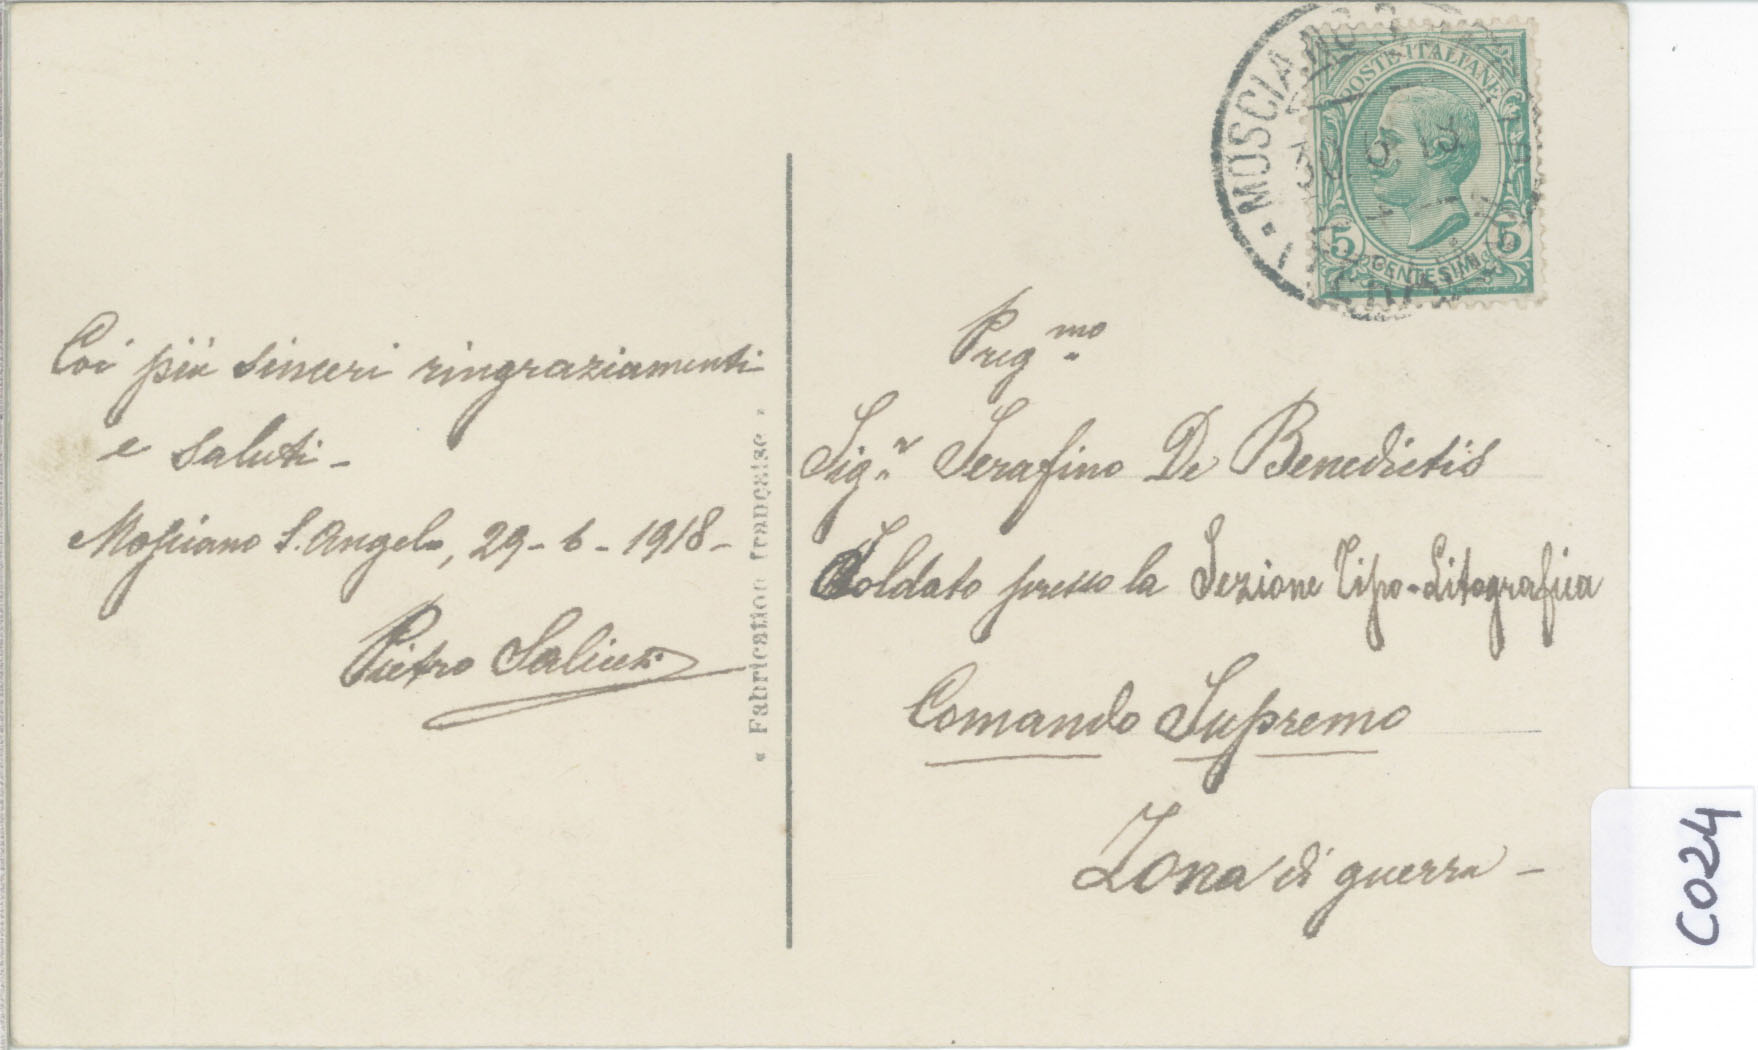 Coi più sinceri ringraziamenti
e saluti -
Mosciano S. Angelo, 29-6-1918-
Pietro Saliceti
« Fabrication française »
MOSCIANO S.
30 6 18
POSTE·ITALIANE
5 5
CENTESIMI
Preg.mo
Sig.r Serafino De Benedictis
Soldato presso la Sezione Tipo-Litografica
Comando Supremo
Zona di guerra -
C024